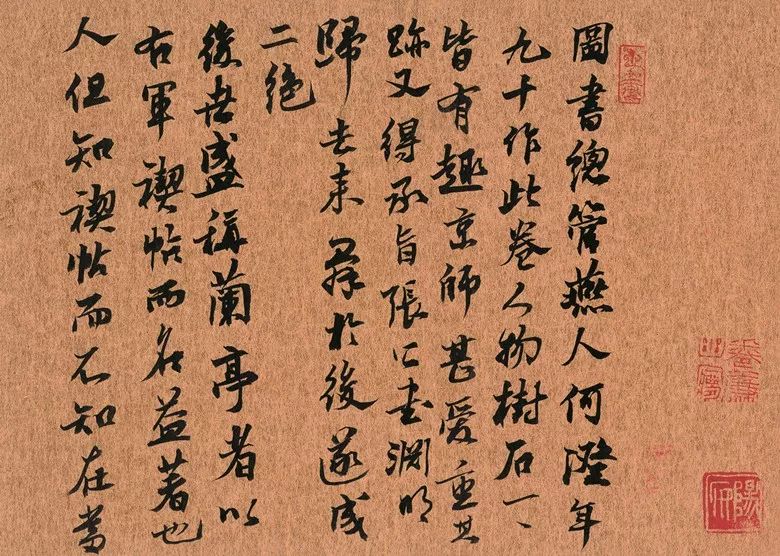 圖書總管燕人何澄年
九十作此卷人物樹石一一
皆有趣京師甚愛重其
跡又得承旨張公書淵明
歸去來辭於後遂成
二絶
後世盛稱蘭亭者以
右軍禊帖而名益著也
人但知禊帖而不知在當